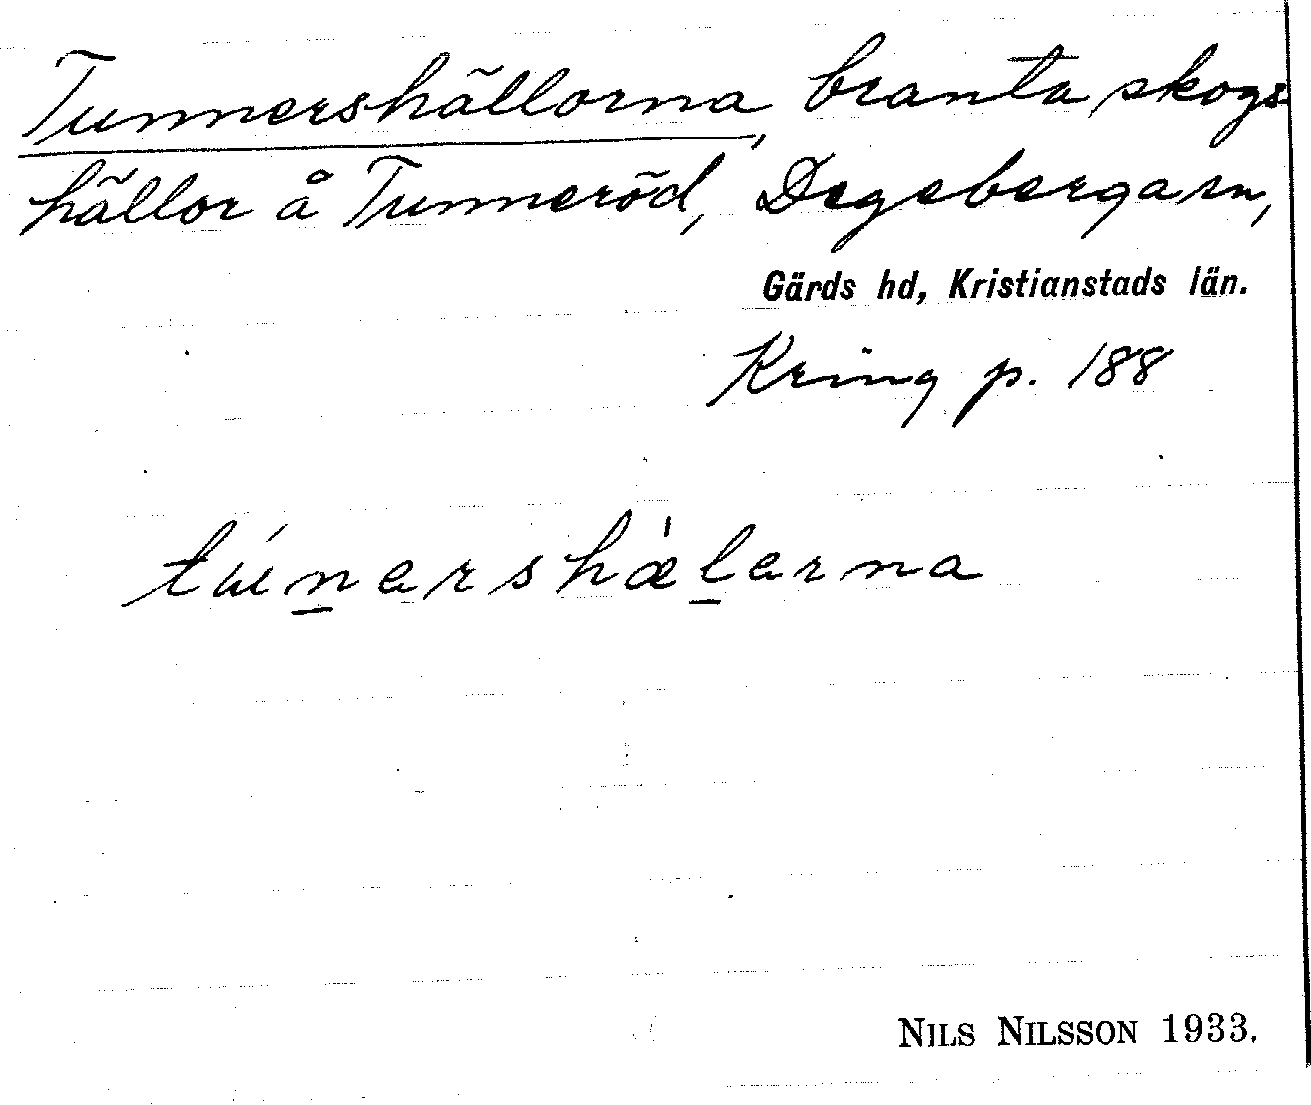 Tunnershällorna, branta skogs-
hällor å Tunneröd, Degeberga sn,
Gärds hd, Kristianstads län.
Kring p. 188
túnershæ̀lerna
NILS NILSSON 1933.